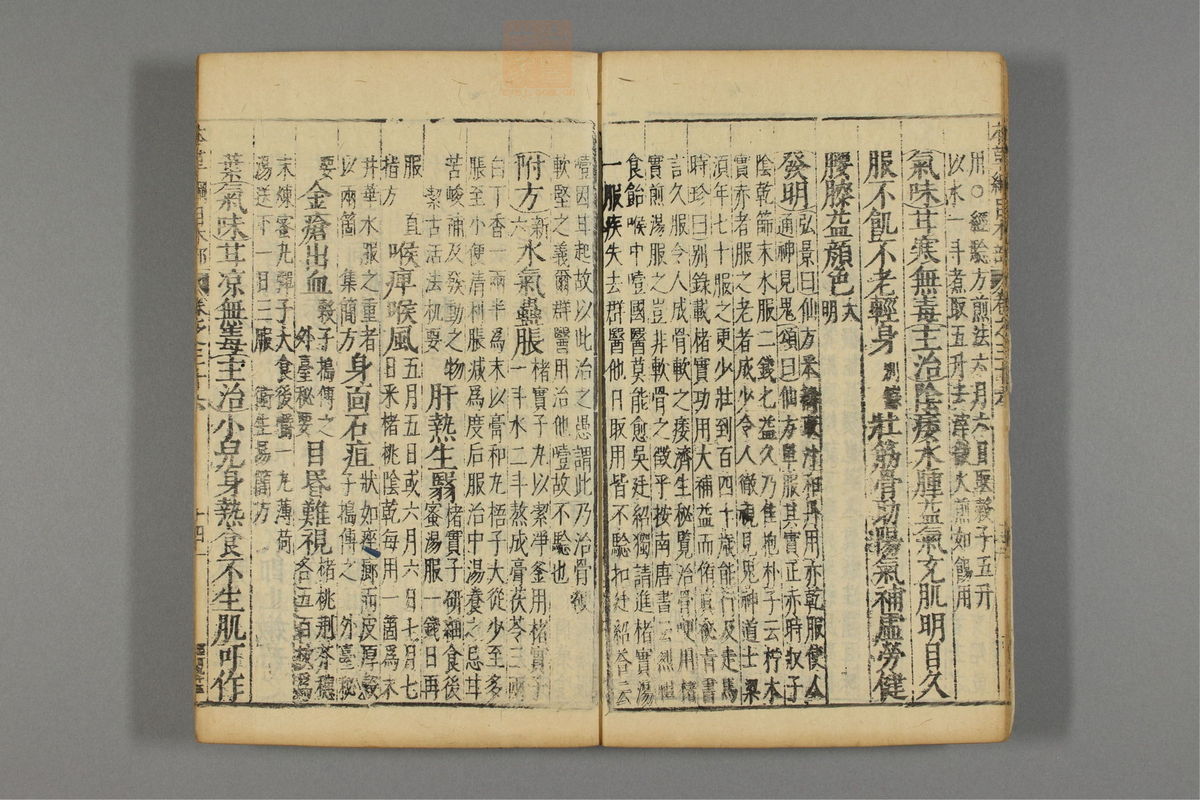 用○經驗方煎法六月六日取穀子五升
以水一斗煮取五升去滓微火煎如餳用
氣味甘寒無毒主治陰痿水腫益氣充肌明目久
服不飢不老輕身別錄壯筋骨助陽氣補虛勞健
腰膝益顏色大明
發明弘景曰仙方采擣取汁和丹用亦乾服使人
通神見鬼頌曰仙方單服其實正赤時收子
陰乾篩末水服二錢匕益久乃佳抱朴子云柠木
實赤者服之老者成少令人徹視見鬼神道士梁
須年七十服之更少壯到百四十歲能行及走馬
時珍曰別錄載楮實功用大補益而修真秘旨書
言久服令人成骨軟之痿濟生秘覽治骨哽用楮
實煎湯服之豈非軟骨之徵乎按南唐書云烈祖
食飴喉中噎國醫莫能愈吳廷紹獨請進楮實湯
一服疾失去群醫他日取用皆不驗扣廷紹答云
噎因甘起故以此治之愚謂此乃治骨哽
軟堅之義爾群醫用治他噎故不驗也
附方新六水氣蠱脹楮實子丸以潔凈釜用楮實子
一斗水二斗熬成膏茯苓三兩
白丁香一兩半為末以膏和丸梧子大從少至多
脹至小便清利脹減為度后服治中湯養之忌甘
苦峻補及發動之物
潔古活法机要肝熱生翳楮實子研細食後
蜜湯服一錢日再
服
直指方喉痹喉風五月五日或六月六日七月七
日采楮桃陰乾每用一箇為末
井華水服之重者
以兩箇集簡方身面石疽狀如痤癤而皮厚穀
子搗傅之外臺秘
要金瘡出血穀子搗傅之
外臺秘要目昏難視楮桃荊芥穗
各五百枚為
末煉蜜丸彈子大食後嚼一丸薄荷
湯送下一日三服衛生易簡方
葉氣味甘凉無毒主治小兒身熱食不生肌可作